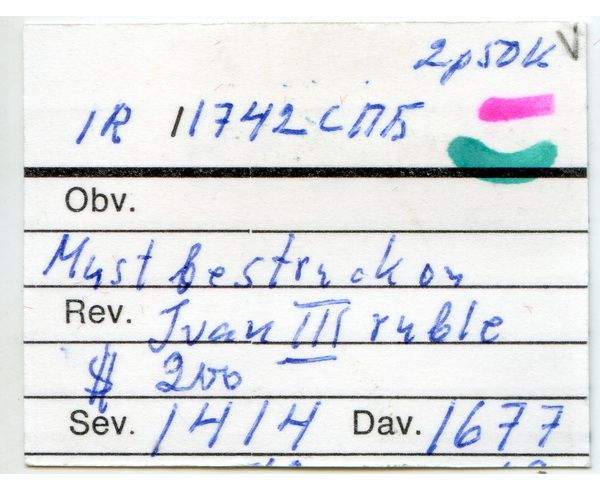 2р50к V
1R 1 1742 СПБ
Obv.
Must be struck on
Rev. Ivan III ruble
$ 200
Sev. 1414 Dav. 1677